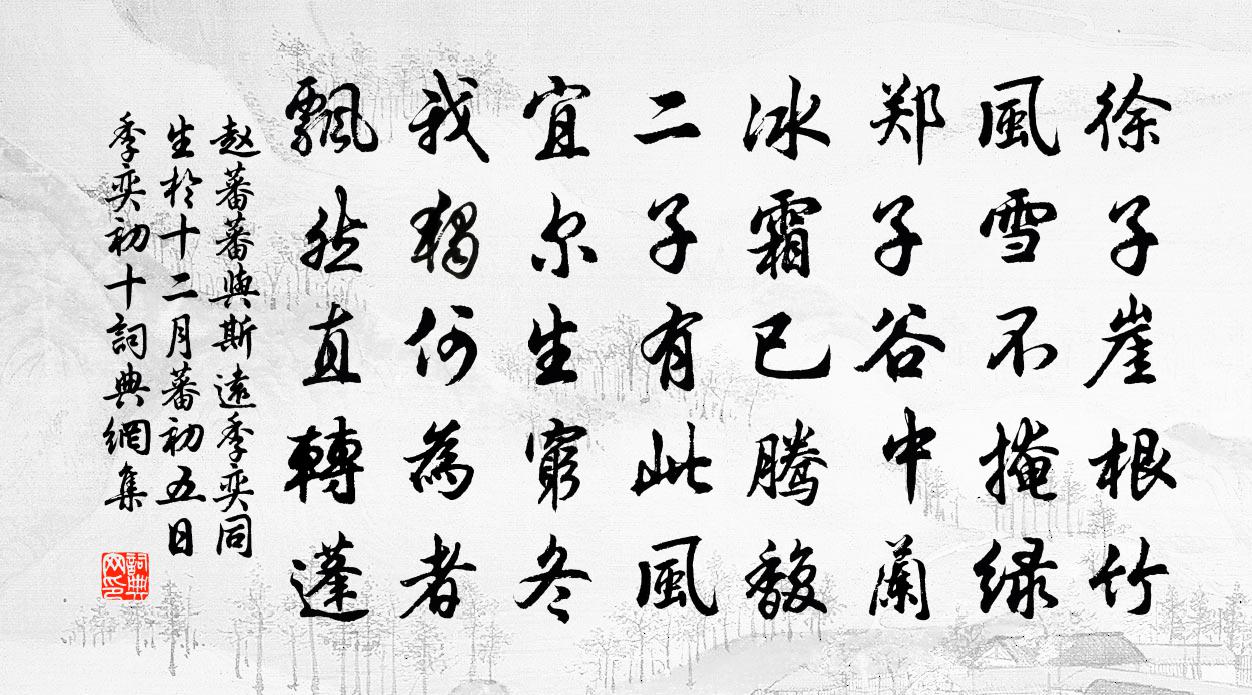 徐子崖根竹
風雪不掩绿
郑子谷中蘭
冰霜已腾馥
二子有此風
宜尔生窮冬
我獨何為者
飄然直轉蓬
赵蕃蕃與斯遠季奕同
生於十二月蕃初五日
季奕初十詞典網集
詞典网印